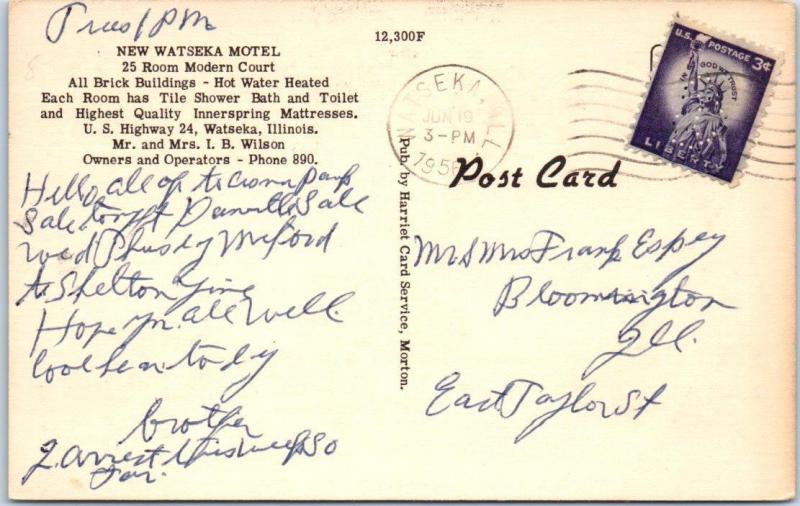 Tues 1 PM
NEW WATSEKA MOTEL
25 Room Modern Court
All Brick Buildings - Hot Water Heated
Each Room has Tile Shower Bath and Toilet
and Highest Quality Innerspring Mattresses.
U. S. Highway 24, Watseka, Illinois.
Mr. and Mrs. I. B. Wilson
Owners and Operators - Phone 890.
Hello, all of to
Sale Danville Sale
Wed Milford
to Shelton
Hope all well.
cool here today
brother
12,300F
WATSEKA, ILL
JUN 19
3-PM
1956
U.S. POSTAGE 3¢
IN GOD WE TRUST
LIBERTY
Post Card
Pub. by Harriet Card Service, Morton.
Mr & Mrs Frank Espey
Bloomington
Ill.
East Taylor St